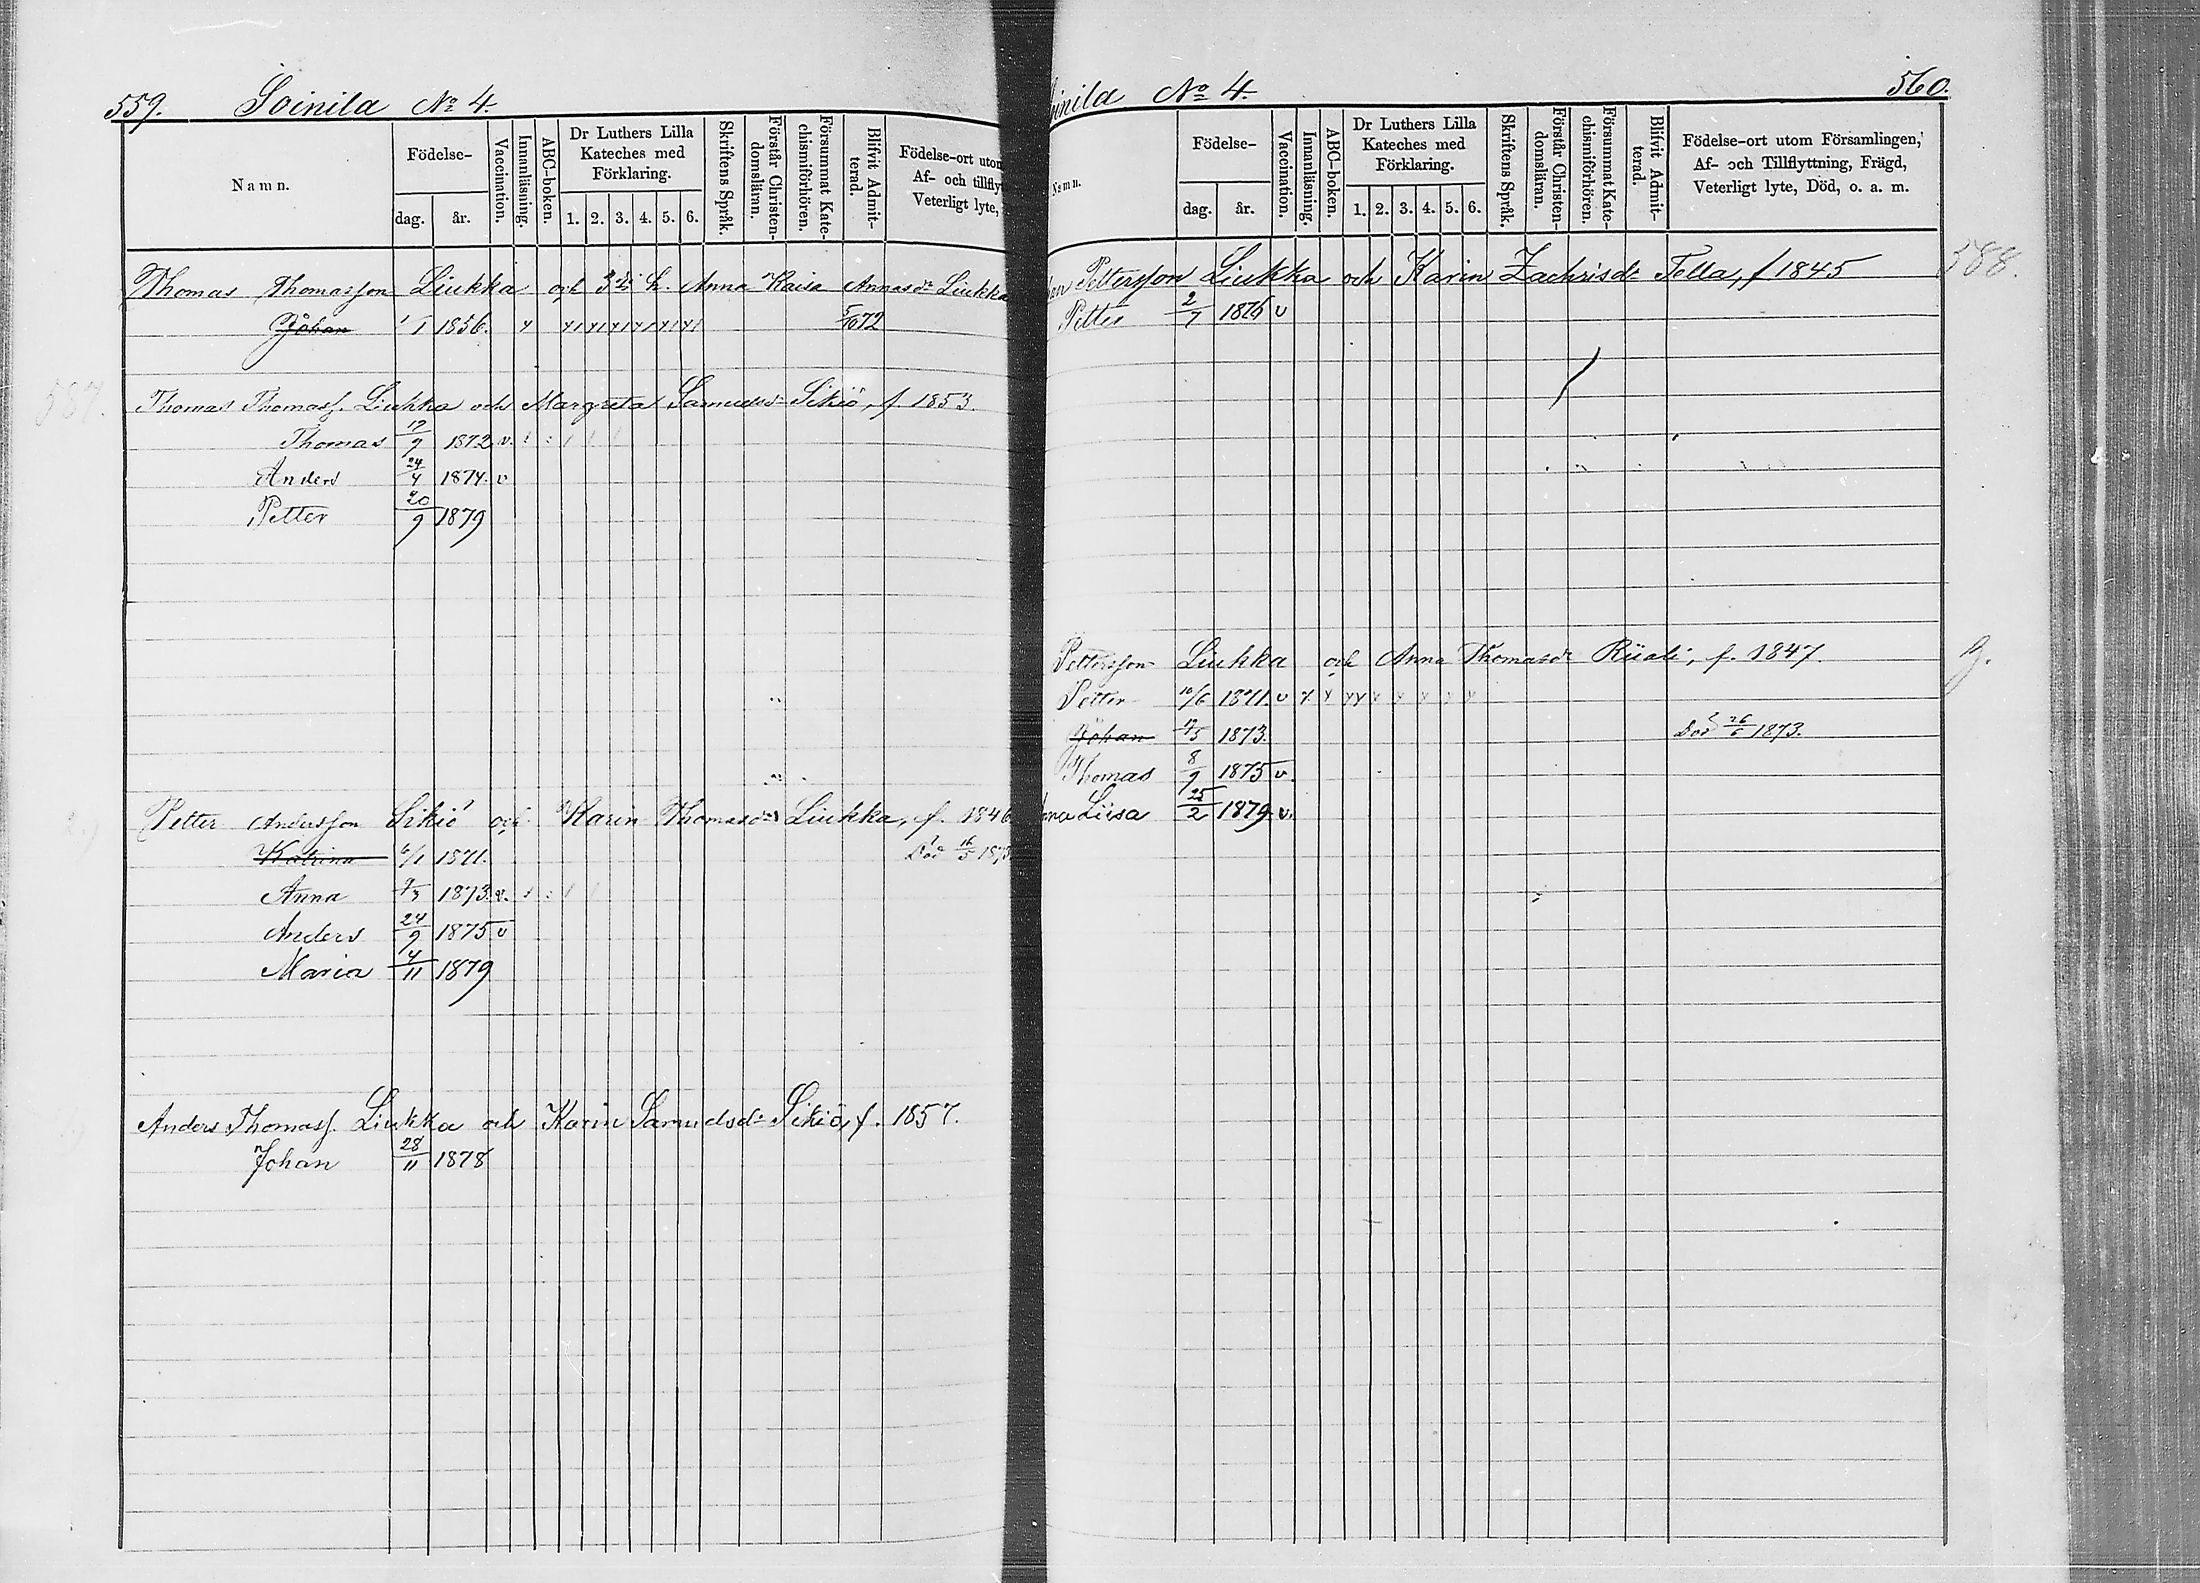 559. Soinila No 4.
Namn.
Födelse-
dag.
år.
Vaccination.
Innanläsning.
ABC-boken.
Dr Luthers Lilla
Kateches med
Förklaring.
1. 2. 3. 4. 5. 6.
Skriftens Språk.
Förstår Christen-
domsläran.
Försummat Kate-
chismiförhören.
Blifvit Admit-
terad.
Födelse-ort utom
Af- och tillfly
Veterligt lyte,
Thomas Thomasson Liukka och 3die h. Anna Kaisa Annasdr Liukka
Johan 1/1 1856. x x x x x x x 5/10 72
587. Thomas Thomass. Liukka och Margreta Samuelsdr Sikiö, f. 1853.
Thomas 17/9 1872 v.
Anders 24/4 1874. v
Petter 20/9 1879
Petter Andersson Sikiö och Karin Thomasdr Liukka, f. 1846
Katrina 6/1 1871. Död 16/5 1873
Anna 7/3 1873. v.
Anders 24/9 1875 v
Maria 14/11 1879
Anders Thomass. Liukka och Karin Samuelsdr Sikiö, f. 1857.
Johan 28/11 1878
oinila No 4. 560.
Namn.
Födelse-
dag.
år.
Vaccination.
Innanläsning.
ABC-boken.
Dr Luthers Lilla
Kateches med
Förklaring.
1. 2. 3. 4. 5. 6.
Skriftens Språk.
Förstår Christen-
domsläran.
Försummat Kate-
chismiförhören.
Blifvit Admit-
terad.
Födelse-ort utom Församlingen,
Af- och Tillflyttning, Frägd,
Veterligt lyte, Död, o. a. m.
an Pettersson Liukka och Karin Zachrisdr Tella, f 1845 588.
Petter 2/7 1876 v
Pettersson Liukka och Anna Thomasdr Riiali, f. 1847.
Petter 10/6 1871. v x x x x x x x x x
Johan 17/5 1873. Död 26/6 1873.
Thomas 8/9 1875 v.
nna Liisa 25/2 1879. v.